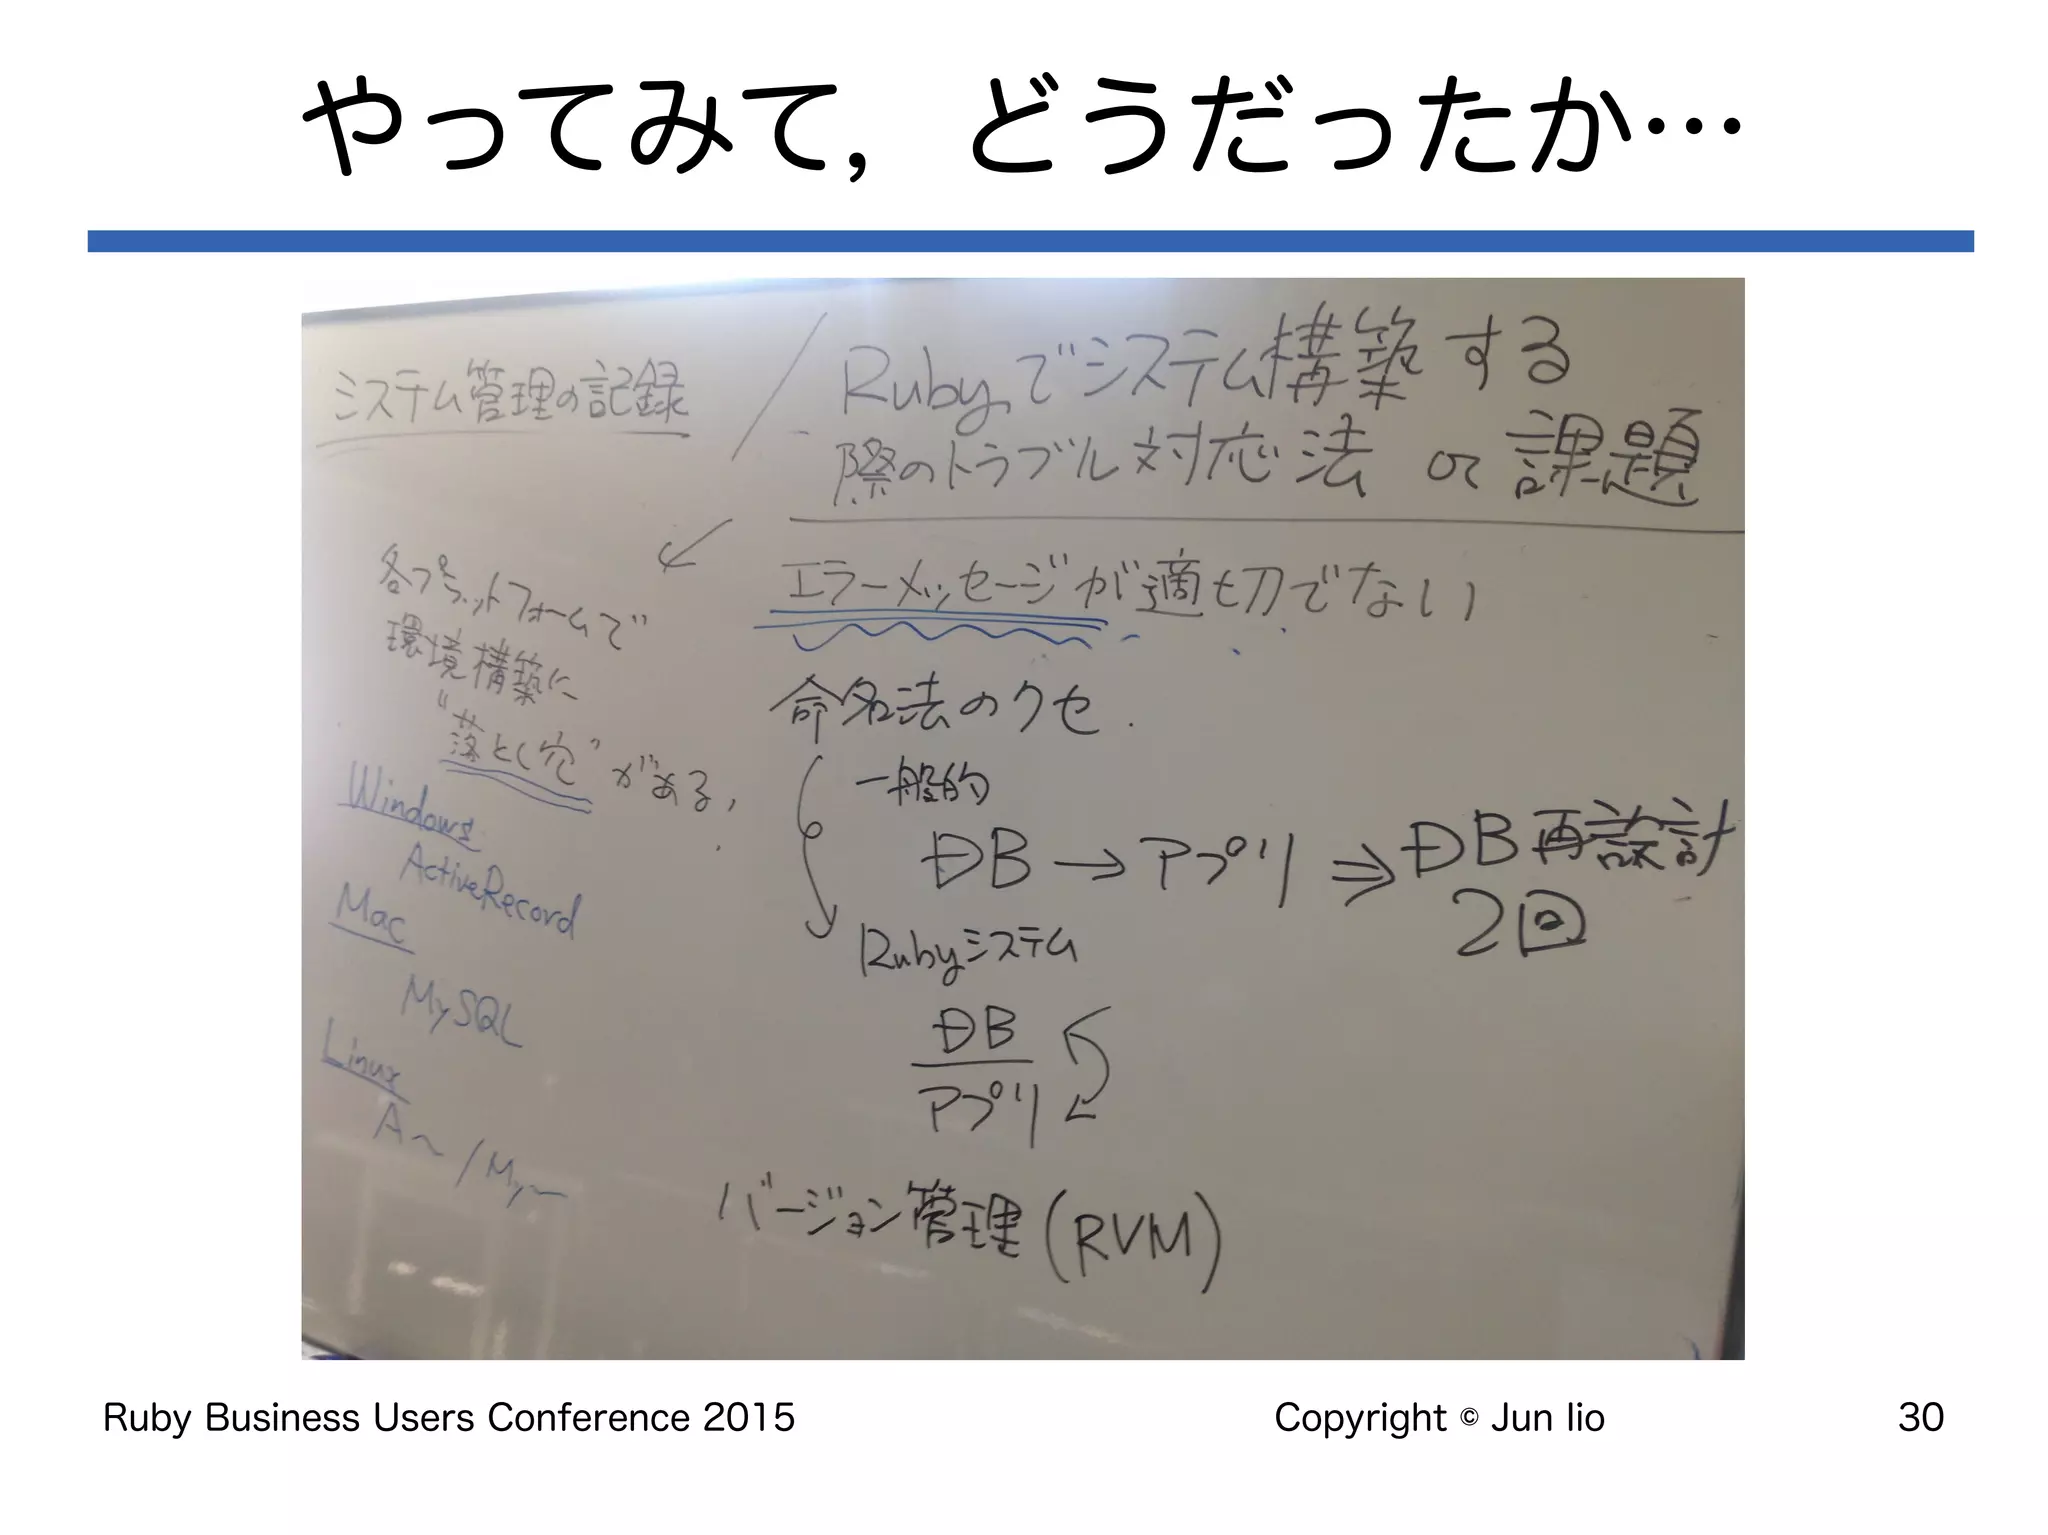 やってみて，どうだったか…
システム管理の記録
Rubyでシステム構築する
際のトラブル対応法 or 課題
各プラットフォームで
環境構築に
"落とし穴"がある,
Windows
ActiveRecord
Mac
MySQL
Linux
A〜/My〜
エラーメッセージが適切でない
命名法のクセ.
一般的
DB→アプリ⇒DB再設計
2回
Rubyシステム
DB
アプリ
バージョン管理(RVM)
Ruby Business Users Conference 2015
Copyright © Jun Iio
30